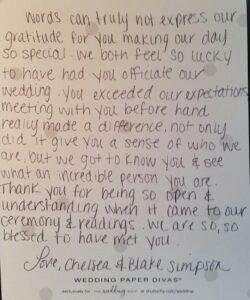 words can truly not express our
gratitude for you making our day
so special. we both feel so lucky
to have had you officiate our
wedding. you exceeded our expectations
meeting with you before hand
really made a difference, not only
did it give you a sense of who we
are, but we got to know you & see
what an incredible person you are.
Thank you for being so open &
understanding when it came to our
ceremony & readings. we are so, so
blessed to have met you.
Love, Chelsea & Blake Simpson
WEDDING PAPER DIVAS
exclusively for my wedding shop at shutterfly.com/wedding